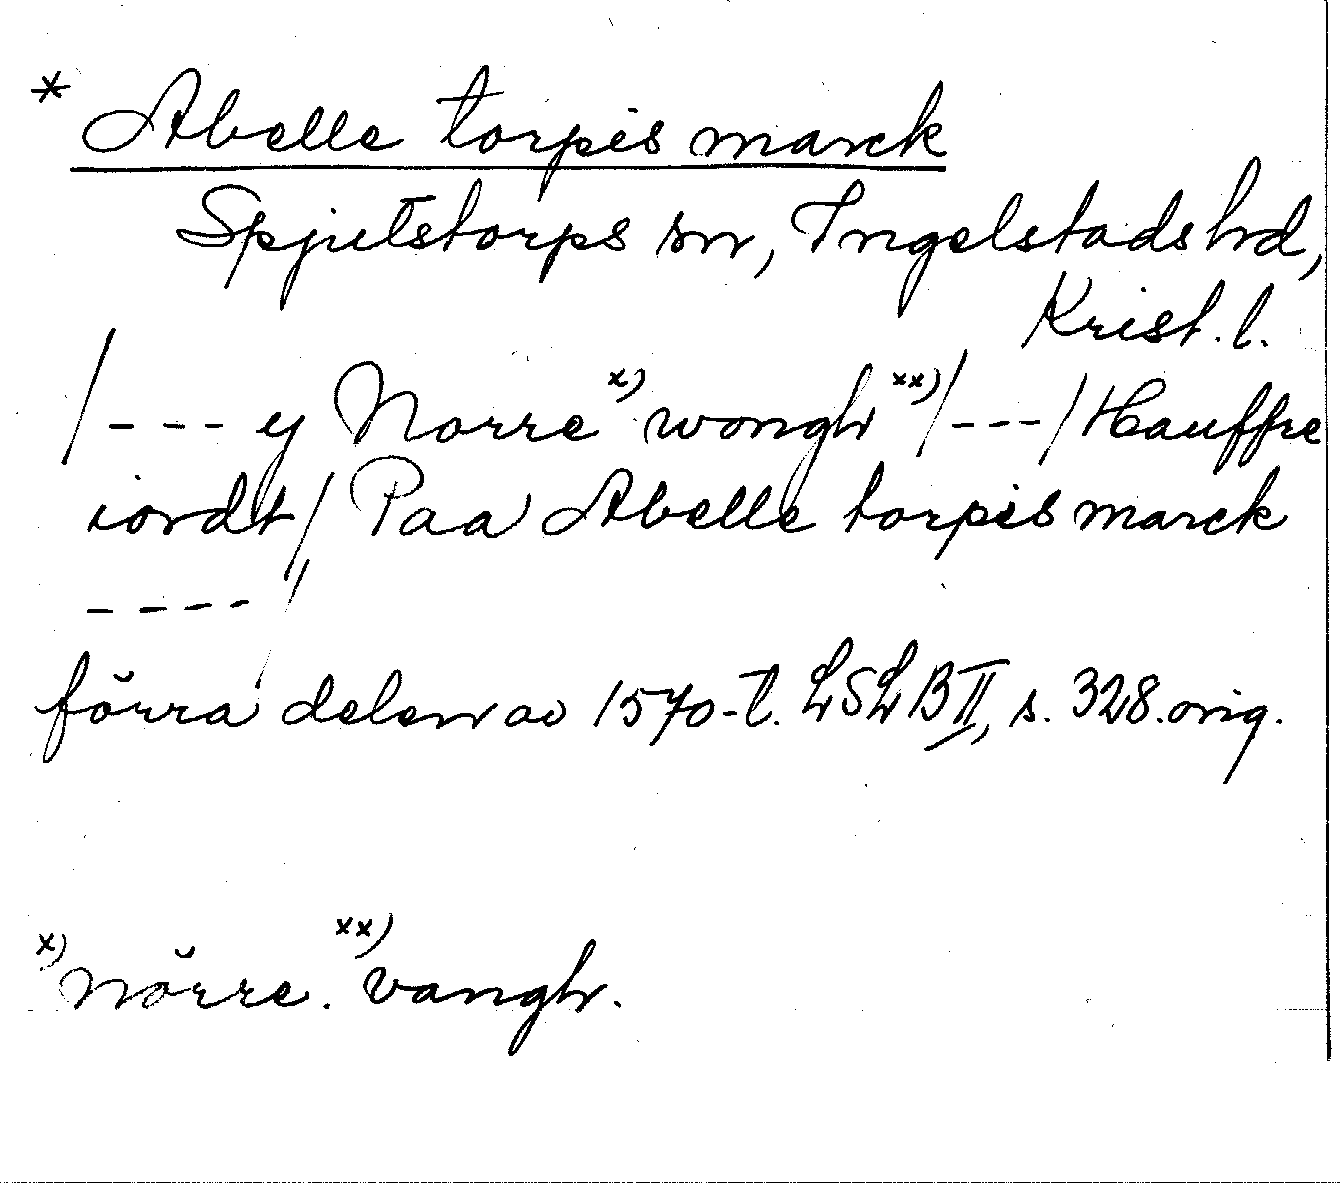 * Abelle torpis marck
Spjutstorps sn, Ingelstads hd,
Krist. l.
/---- ij Norre x) wongh xx)/---/ Hauffre
iordt/ Paa Abelle torpis marck
---- //
förra delen av 1570-t. LSLB II, s. 328. orig.
x) nörre. xx) vangh.